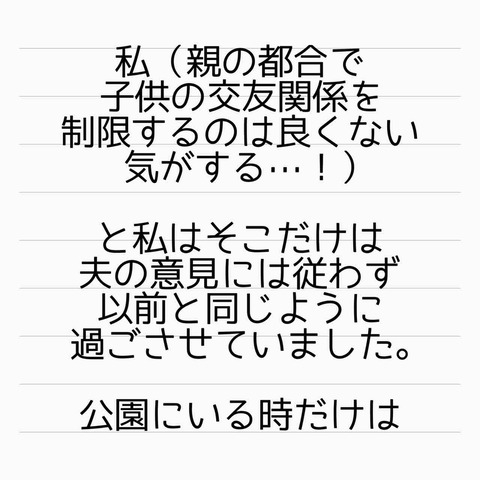 私（親の都合で
子供の交友関係を
制限するのは良くない
気がする…！）
と私はそこだけは
夫の意見には従わず
以前と同じように
過ごさせていました。
公園にいる時だけは